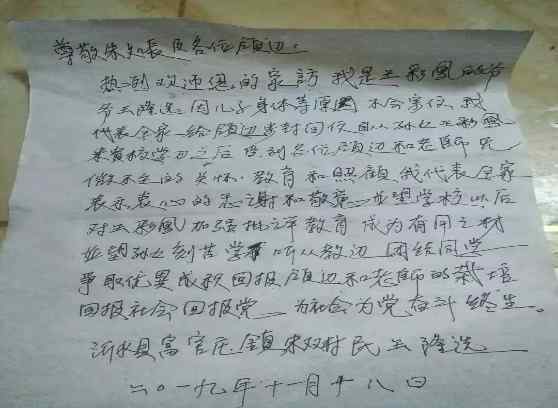 尊敬朱知長及各位領边.
热烈欢迎恩的家訪 我是王彩風的爷
爷王隆选 因儿子身体等原因 不会寫信 我
代表全家一给領边 封回信 自从孙女王彩風
来貴校学习之后 受到各位領边和老師无
微不至的关怀 教育和照顧 我代表全家
表示衷心的感謝和敬意 並望学校以后
对王彩風加强批评教育 成为有用之材
並望孙女刻苦学習 听从教边 团结同学
争取优異成积 回报領边和老師的栽培
回报社会 回报党 为社会为党奋斗终生。
沂水县富官庄鎮朱双村民王隆选
二0一九年十一月十八日